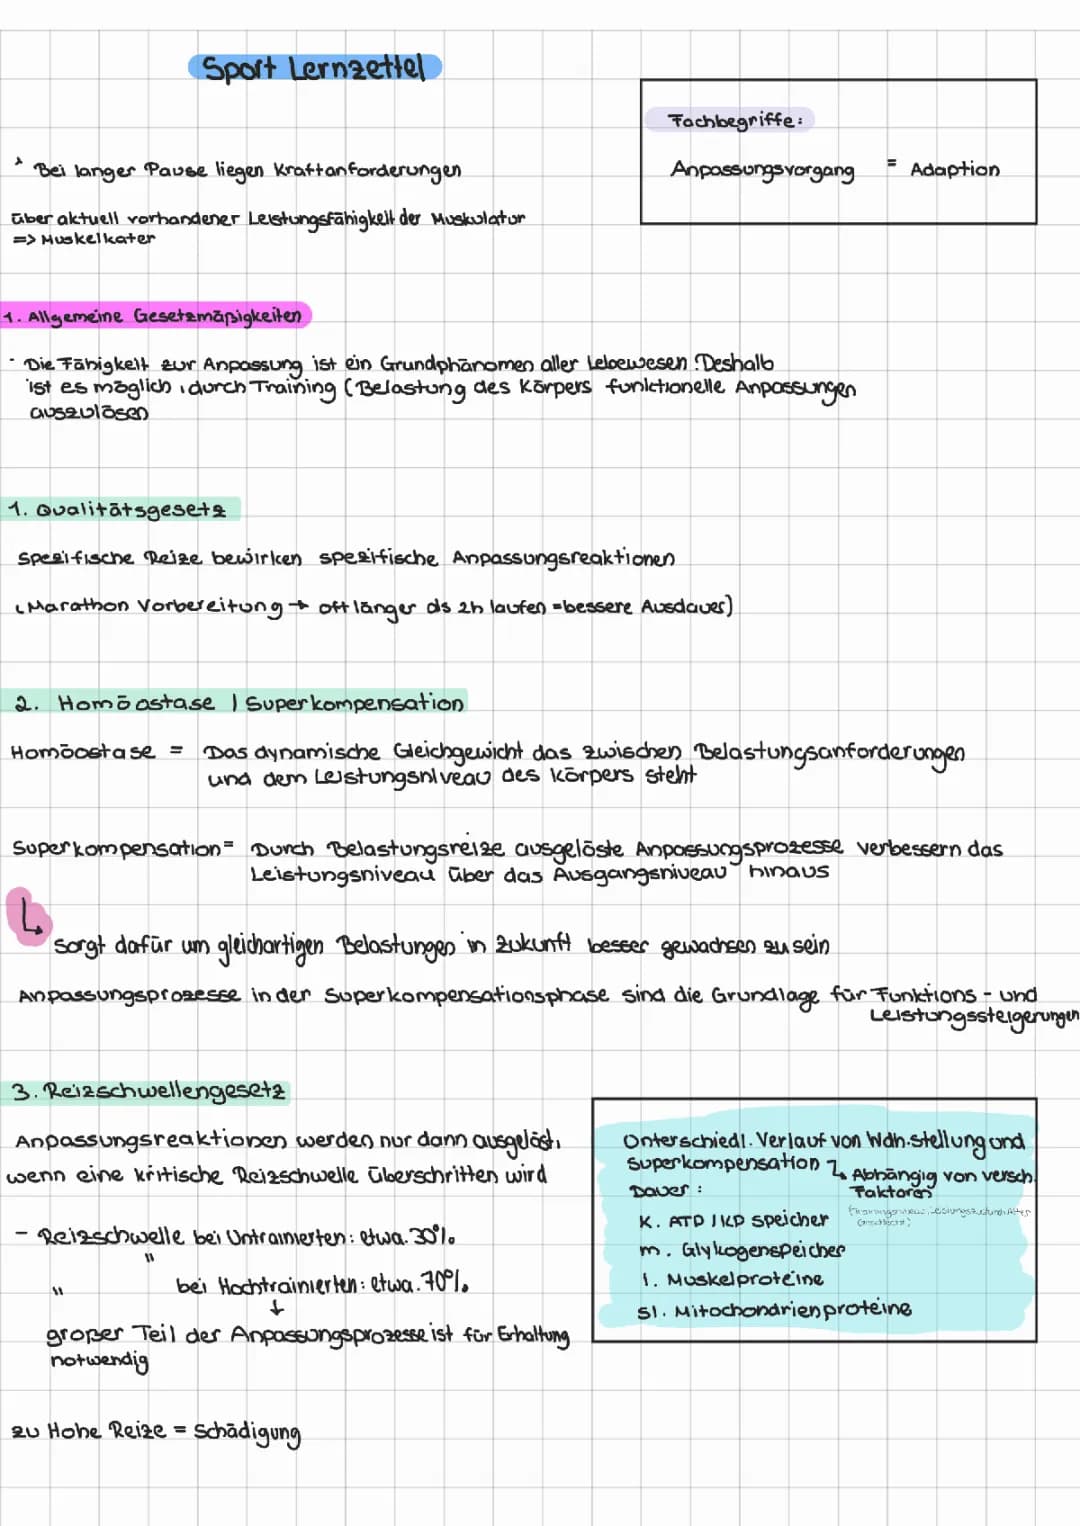 Sport Lernzettel
Fachbegriffe:
Anpassungsvorgang = Adaption
* Bei langer Pause liegen Kraftanforderungen
über aktuell vorhandener Leistungsfähigkeit der Muskulatur
=> Muskelkater
1. Allgemeine Gesetzmäßigkeiten
- Die Fähigkeit zur Anpassung ist ein Grundphänomen aller Lebewesen. Deshalb
ist es möglich, durch Training (Belastung des Körpers funktionelle Anpassungen
auszulösen
1. Qualitätsgesetz
Spezifische Reize bewirken spezifische Anpassungsreaktionen
(Marathon Vorbereitung → oft länger als 2h laufen = bessere Ausdauer)
2. Homöostase | Superkompensation
Homöostase = Das dynamische Gleichgewicht das zwischen Belastungsanforderungen
und dem Leistungsniveau des Körpers steht
Superkompensation = Durch Belastungsreize ausgelöste Anpassungsprozesse verbessern das
Leistungsniveau über das Ausgangsniveau hinaus
↳ sorgt dafür um gleichartigen Belastungen in Zukunft besser gewachsen zu sein
Anpassungsprozesse in der Superkompensationsphase sind die Grundlage für Funktions- und
Leistungssteigerungen
3. Reizschwellengesetz
Anpassungsreaktionen werden nur dann ausgelöst,
wenn eine kritische Reizschwelle überschritten wird
- Reizschwelle bei Untrainierten: etwa. 30%
" " bei Hochtrainierten: etwa. 70%
↓
großer Teil der Anpassungsprozesse ist für Erhaltung
notwendig
zu Hohe Reize = Schädigung
Unterschiedl. Verlauf von Wdh.stellung und
Superkompensation ↳ Abhängig von versch.
Faktoren
Dauer:
K. ATP / KP Speicher
m. Glykogenspeicher
l. Muskelproteine
sl. Mitochondrienproteine